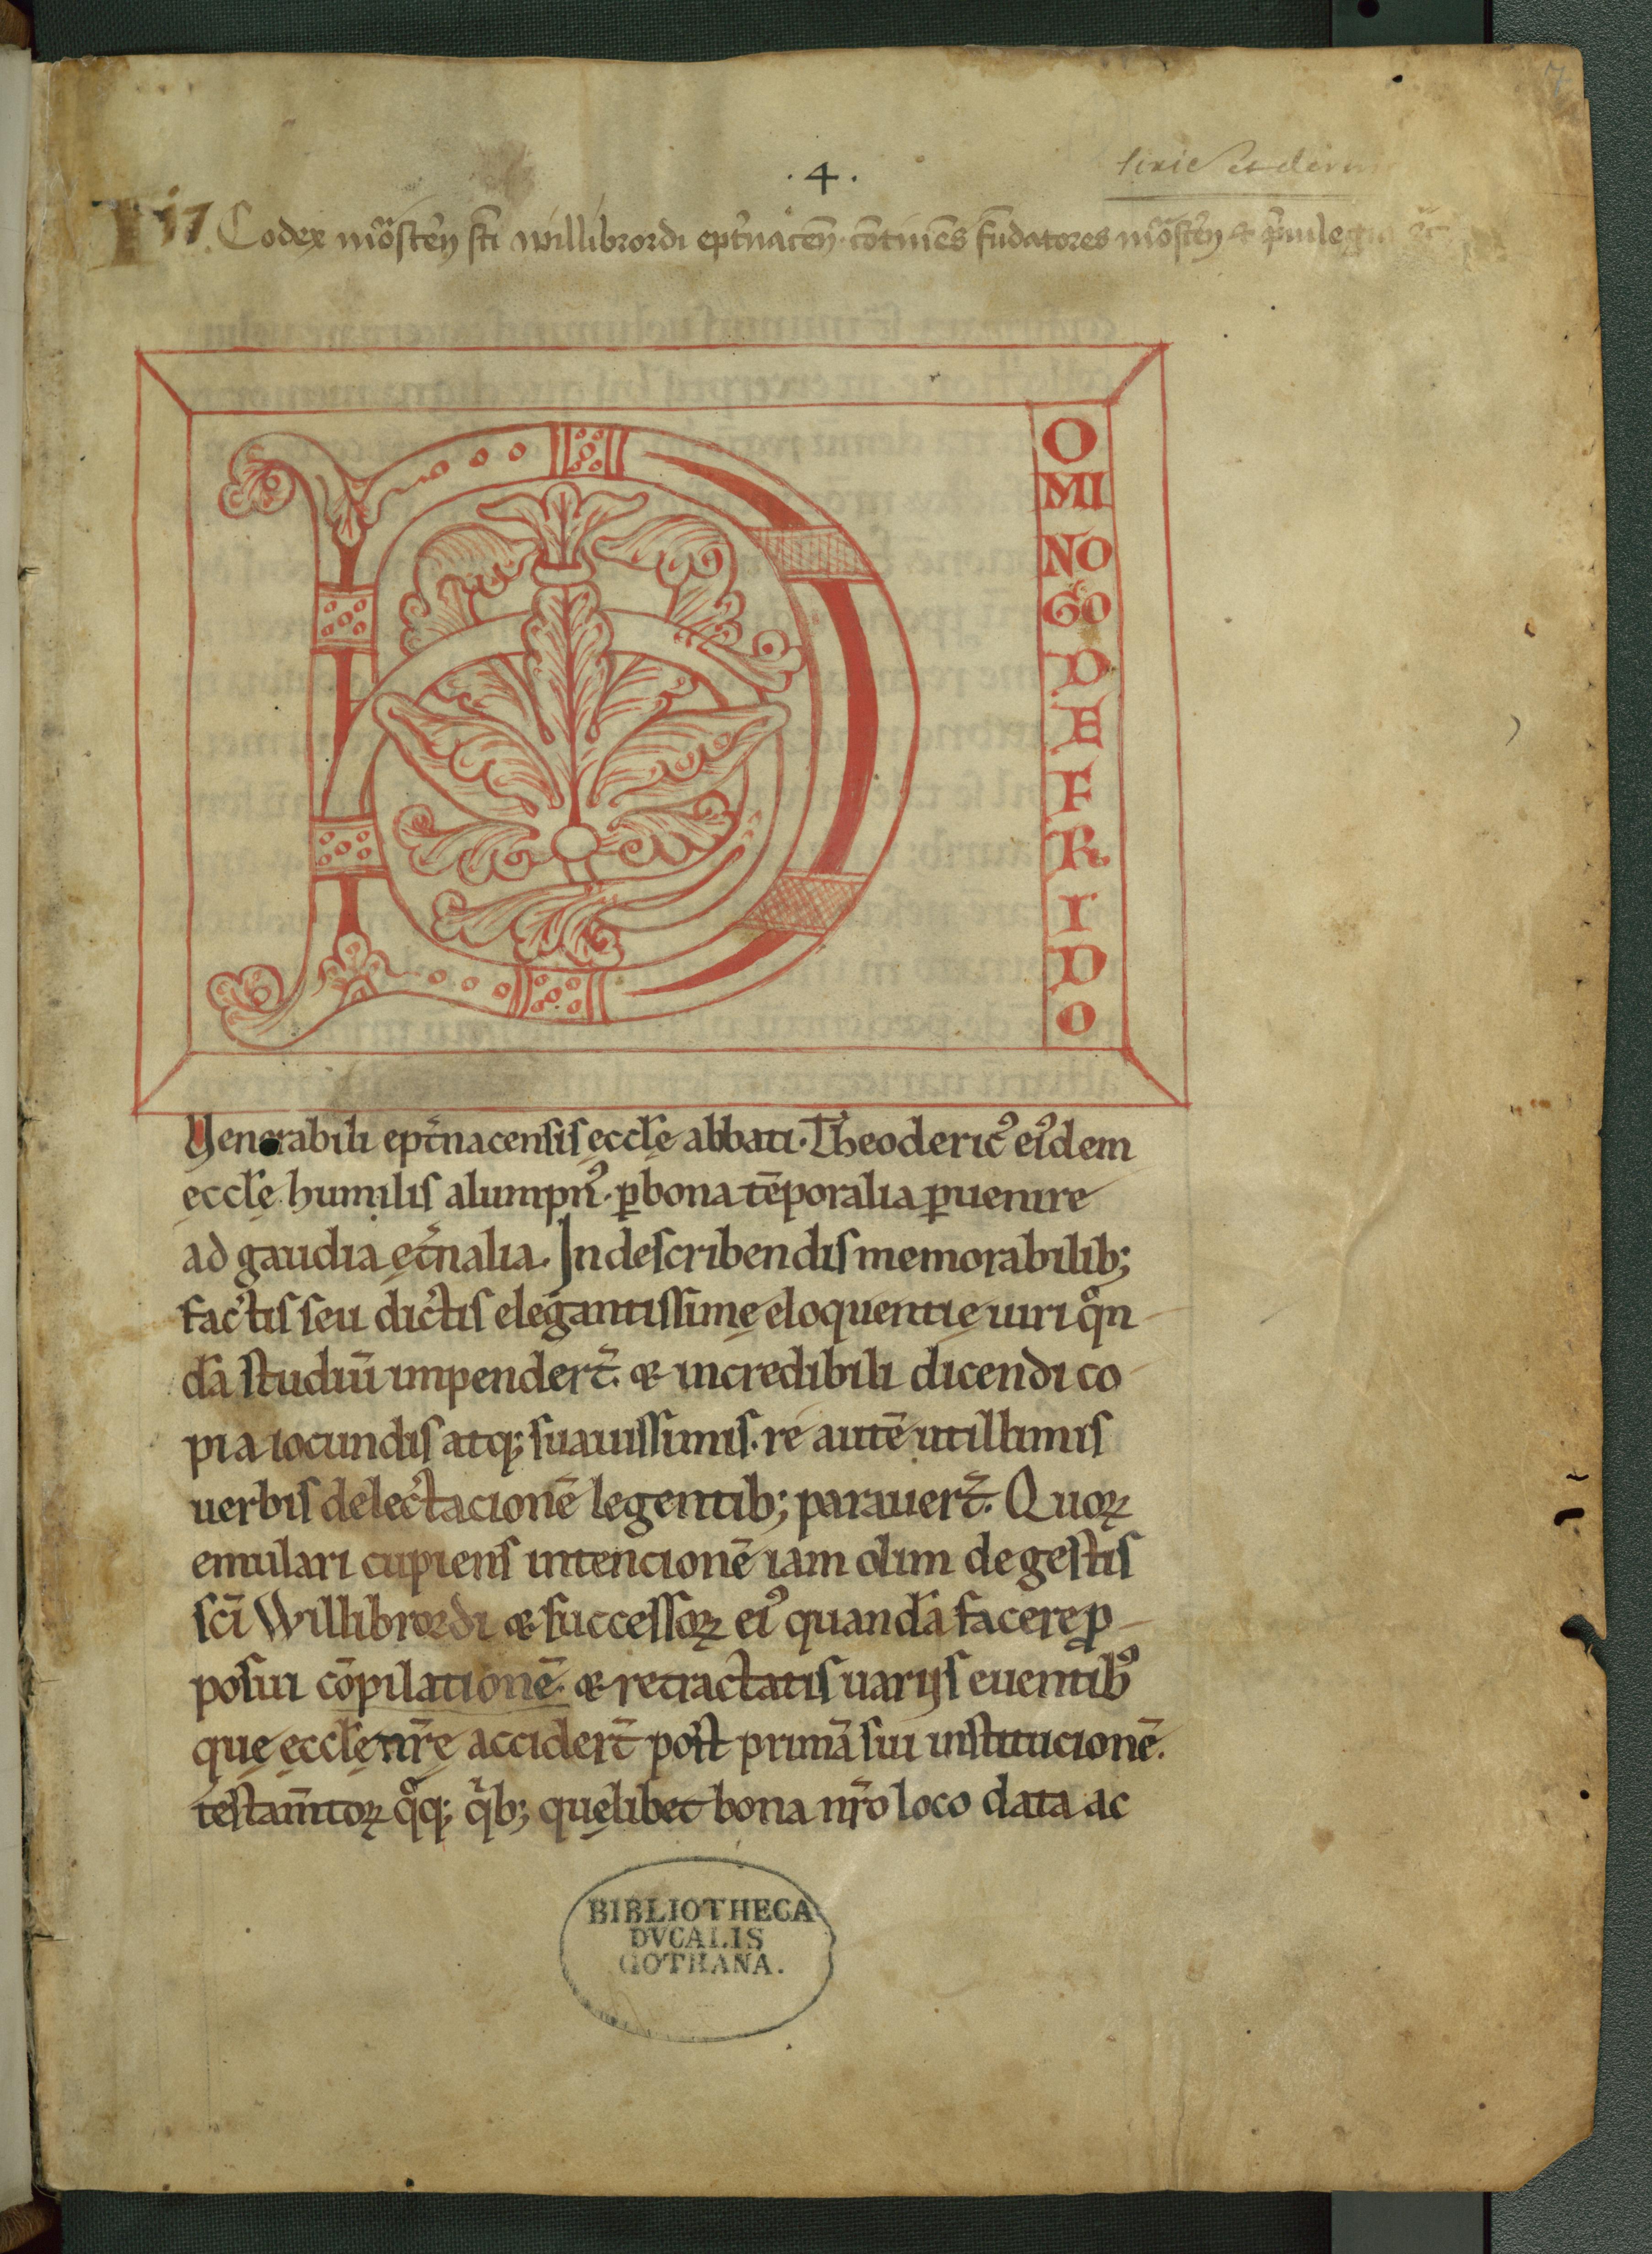 7
·4·
Codex mōstēŋ sc̄i willibrordi ept̄nacen̄ · cōtinēs fūdatores mōstēŋ & p̄uilegia
D
O
MI
NO
GO
D
E
F
R
I
D
O
Venerabili ept̄nacensis eccl̄ę abbati · Theoderic᾽ ei᾽dem
eccl̄ę humilis alumpn᾽ · ꝑ bona tēporalia ꝑuenire
ad gaudia ęt̄nalia. In describendis memorabilib;
factis seu dictis elegantissimę eloquentię uiri qͦn
dā studiū impendert̄. & incredibili dicendi co
pia iocundis atq; suauissimis. re autē utillimis
uerbis delectacionē legentib; parauert̄. Quoꝝ
emulari cupiens intencionē iam olim de gestis
sc̄i Willibrordi & successoꝝ ei᾽ quandā facere ꝓ
posui cōpilationē. & retractatis uarijs euentib᾽
quę eccl̄ę nr̄ę accidert̄ post primā sui institucionē.
testam̄toꝝ qͦq; qͥb; quęlibet bona nr̄o loco data ac
BIBLIOTHECA
DVCALIS
GOTHANA.